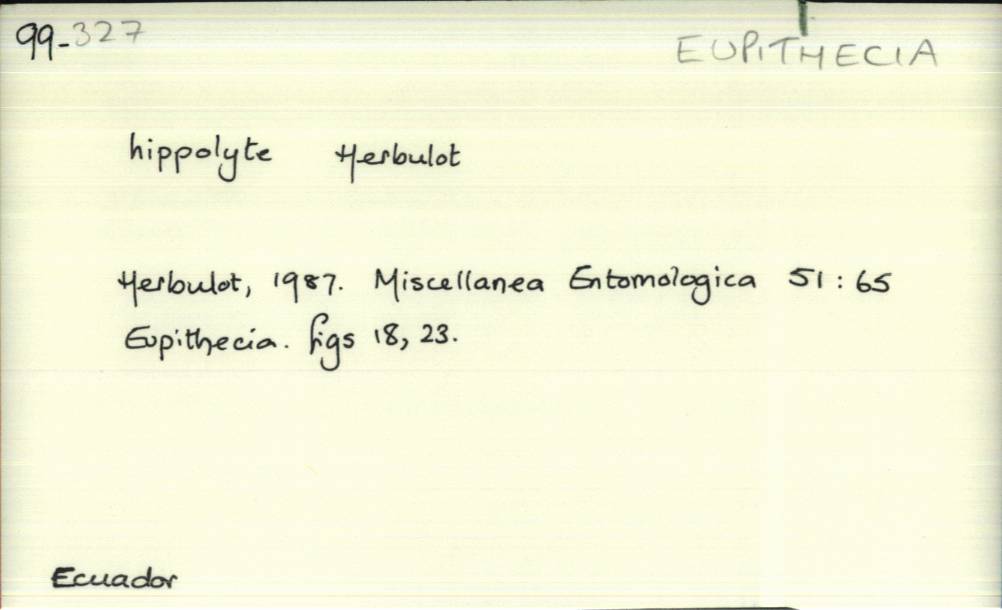 99-327
EUPITHECIA
hippolyte Herbulot
Herbulot, 1987. Miscellanea Entomologica 51:65
Eupithecia. figs 18, 23.
Ecuador